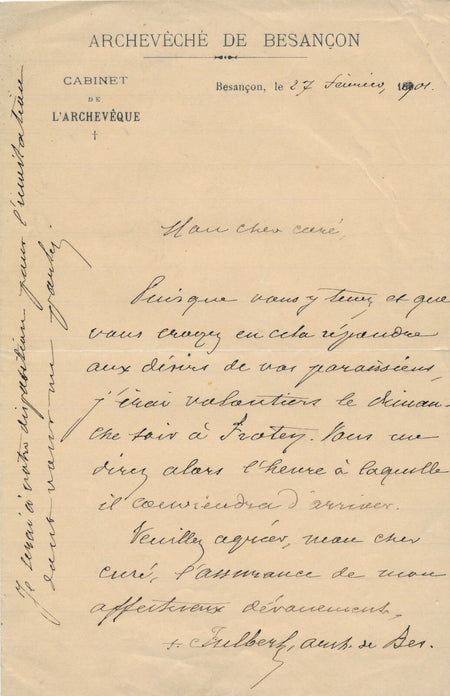 ARCHEVÊCHÉ DE BESANÇON
CABINET
DE
L'ARCHEVÊQUE
Besançon, le 27 février, 1901.
Mon cher curé,
Puisque vous y tenez et que
vous croyez en cela répondre
aux désirs de vos paroissiens,
j'irai volontiers le diman-
che soir à Frotey. Vous me
direz alors l'heure à laquelle
il conviendra d'arriver.
Veuillez agréer, mon cher
curé, l'assurance de mon
affectueux dévouement,
+ Fulbert, arch. de Bes.
Je serai à votre disposition pour l'invitation
dont vous me parlez